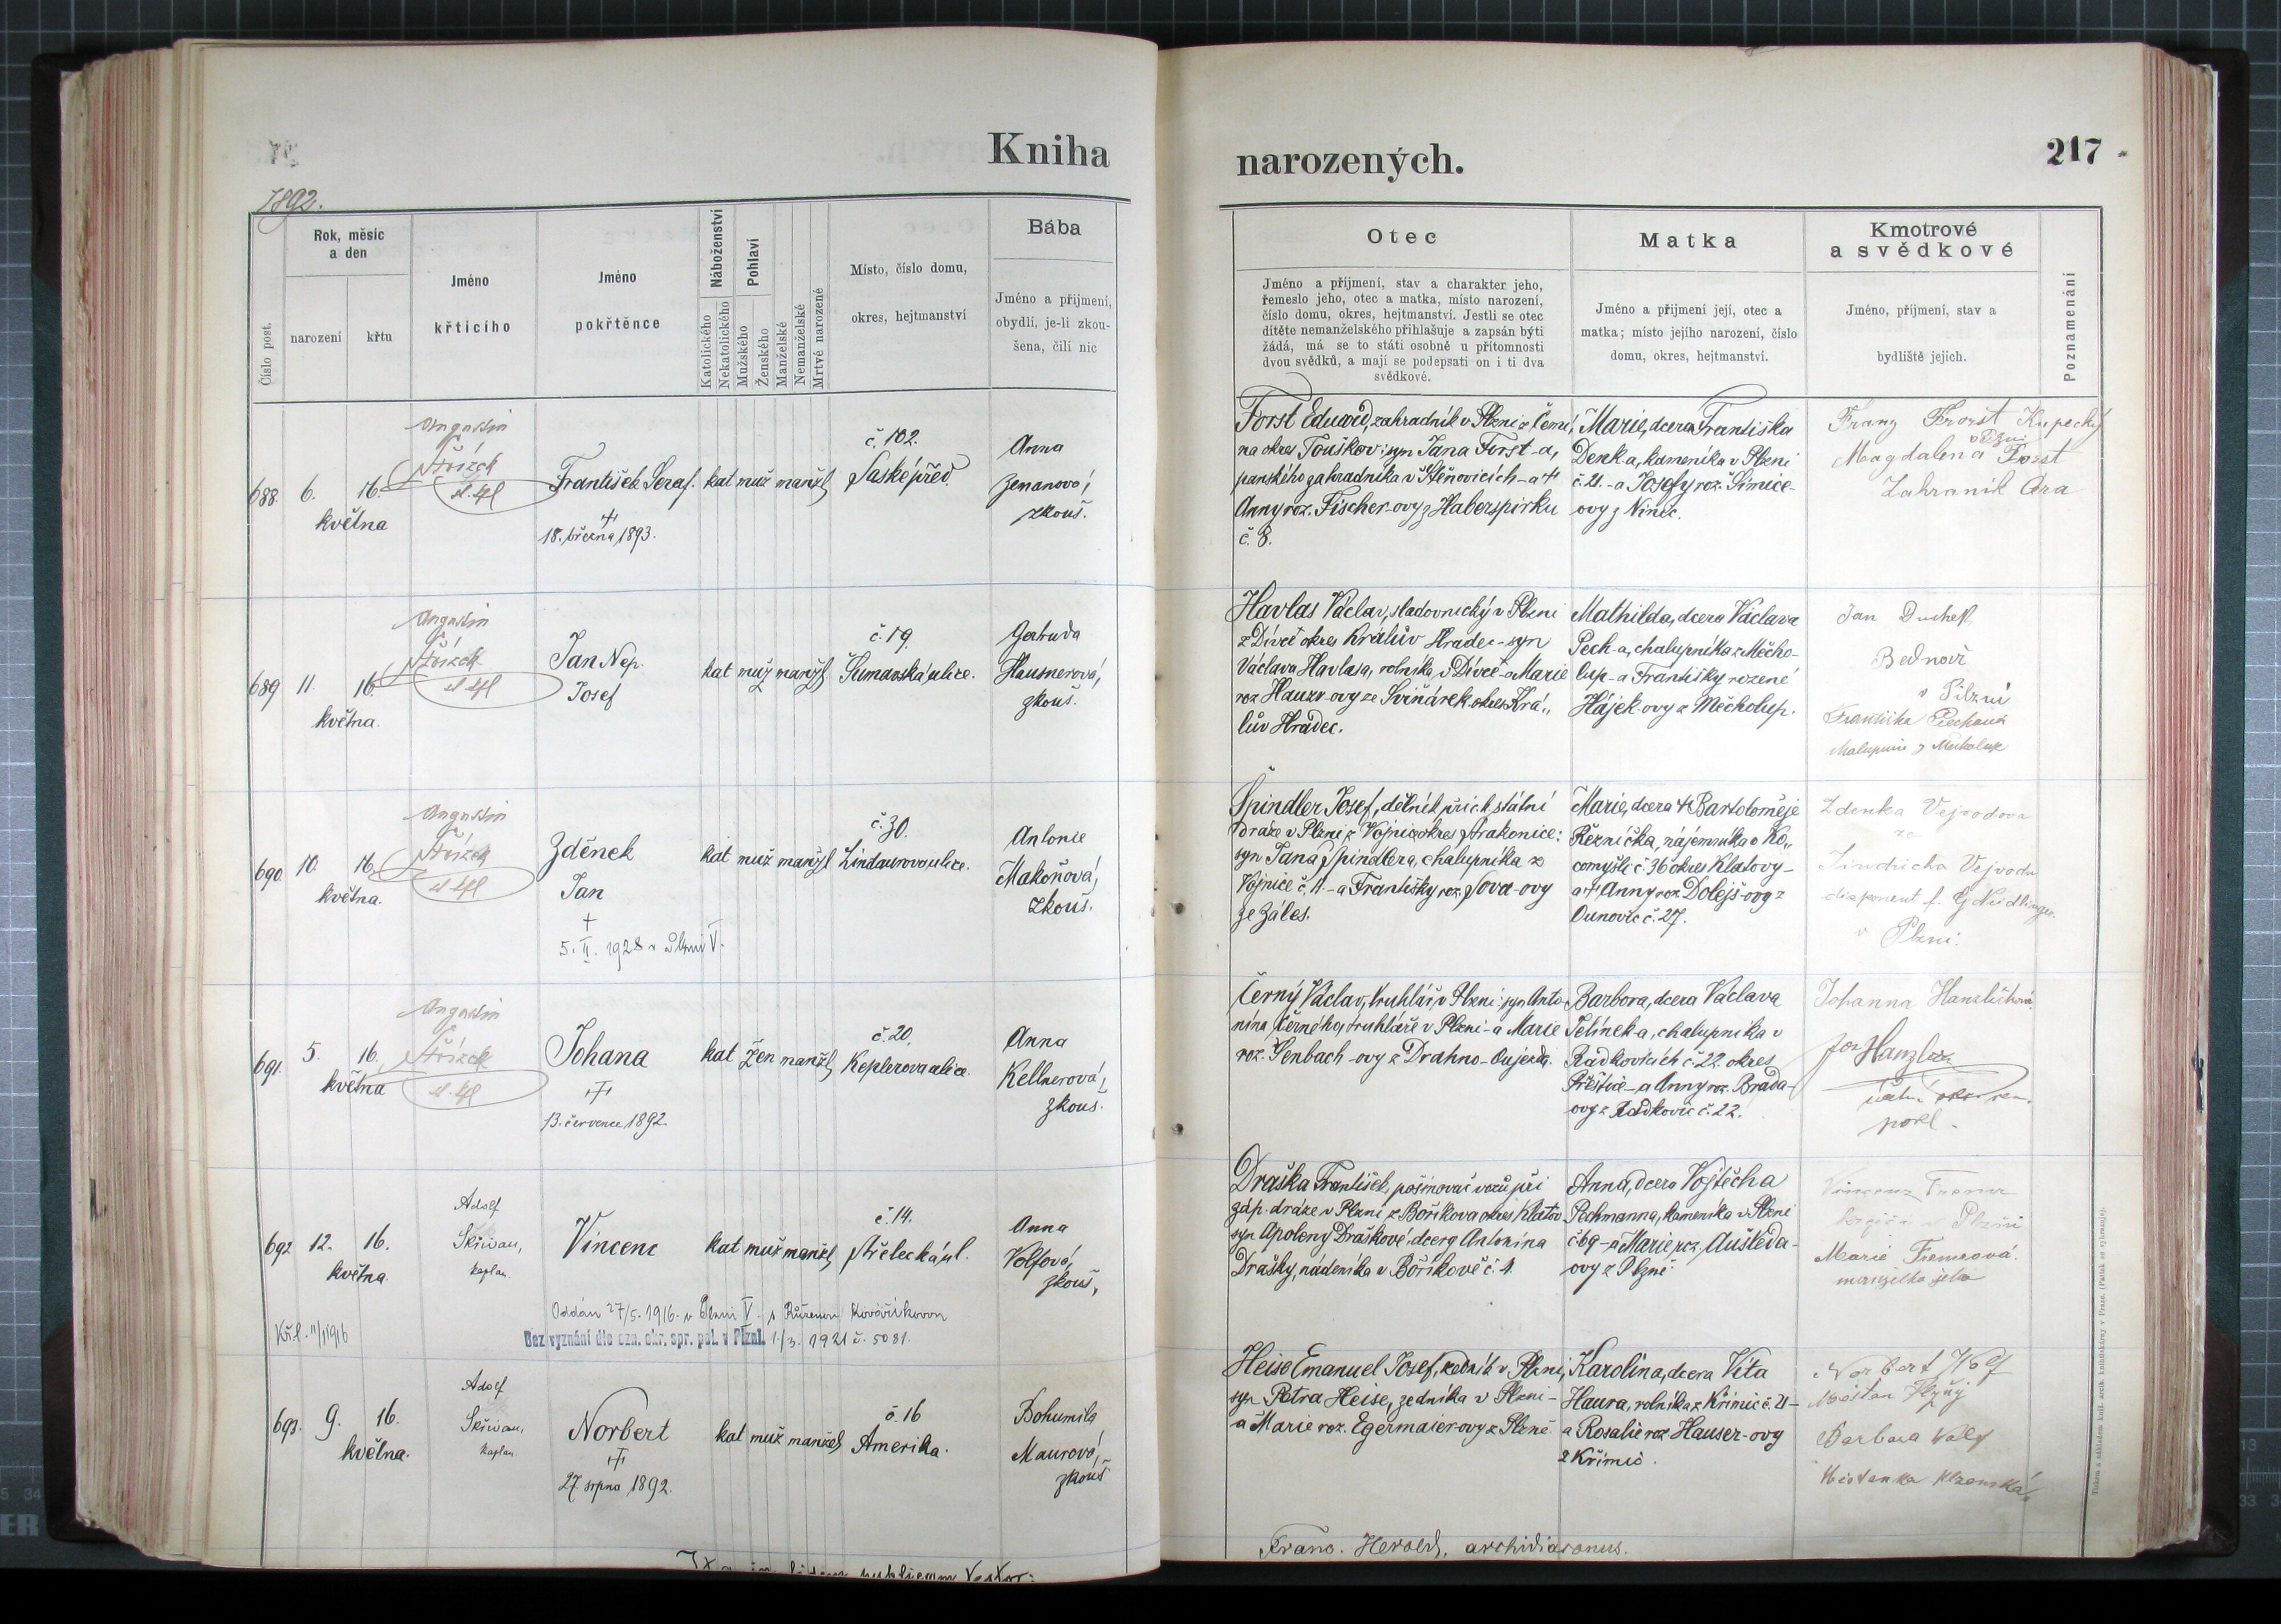 Kniha
narozených.
217
1892.
Číslo post.
Rok, měsíc
a den
narození
křtu
Jméno
křtícího
Jméno
pokřtěnce
Náboženství
Katolického
Nekatolického
Pohlaví
Mužského
Ženského
Manželské
Nemanželské
Mrtvě narozené
Místo, číslo domu,
okres, hejtmanství
Bába
Jméno a příjmení,
obydlí, je-li zkou-
šena, čili nic
Otec
Jméno a příjmení, stav a charakter jeho,
řemeslo jeho, otec a matka, místo narození,
číslo domu, okres, hejtmanství. Jestli se otec
dítěte nemanželského přihlašuje a zapsán býti
žádá, má se to státi osobně u přítomnosti
dvou svědků, a mají se podepsati on i ti dva
svědkové.
Matka
Jméno a příjmení její, otec a
matka; místo jejího narození, číslo
domu, okres, hejtmanství.
Kmotrové
a svědkové
Jméno, příjmení, stav a
bydliště jejich.
Poznamenání
688.
6.
16.
května
Augustin
Střízek
František Seraf.
18. března 1893.
kat muž manžl
č. 102.
Saské před.
Anna
Zemanová,
zkouš.
Forst Eduard, zahradník v Plzni z
na okres Touškov: syn Jana Forst-a,
panského zahradníka v Štěnovicích - a
Anny roz. Fischer-ovy z Haberspirku
č. 8.
Marie, dcera Františka
Denk-a, kameníka v Plzni
č. 21. - a Josefy roz. Šimice-
ovy z Ninic.
Franz Forst Kupecký
Magdalena Forst
689
11.
16.
května.
Augustin
Střízek
Jan Nep.
Josef
kat muž manžl
č. 19.
Šumavská ulice.
Gertruda
Hausnerová,
zkouš.
Havlas Václav, sladovnický v Plzni
z Dívče okres Králův Hradec - syn
Václava Havlasa, rolníka v Dívče - a Marie
roz. ze Svinárek okres Krá„
lův Hradec.
Mathilda, dcera Václava
Pech-a, chalupníka z Mecho-
lup - a Františky rozené
Hájek-ovy z Měcholup.
Jan Duchek
Bednář
v Pilzni
Františka
690
10.
16.
května.
Augustin
Střízek
Zdeněk
Jan
†
5. II. 1928 v Plzni V.
kat muž manžl
č. 30.
Lindaurova ulice.
Antonie
Makoňová,
zkouš.
Špindler Josef, dělník při c.k. státní
dráze v Plzni z Vojnic okres Strakonice:
syn Jana Špindlera, chalupníka z
Vojnice č. 11. - a Františky roz. Sova-ovy
ze Záles.
Marie, dcera † Bartoloměje
Řezníčka, nájemníka v Ko„
comyšli č. 36 okres Klatovy -
a † Anny roz. Dolejš-ovy z
Ounovic č. 27.
Zdenka Vejvodova
za
Jindřicha Vejvodu
disponent f.
v Plzni.
691.
5.
16.
května
Augustin
Střízek
Johana
13. července 1892.
kat žen manžl
č. 20.
Keplerova ulice.
Anna
Kellnerová,
zkouš.
Černý Václav, truhlář v Plzni: syn Anto-
nína Černého, truhláře v Plzni - a Marie
roz. Senbach-ovy z Drahno-Oujezda.
Barbora, dcera Václava
Jelínek-a, chalupníka v
Radkovicích č. 22 okres
Přeštice - a Anny roz. Brada-
ovy z Radkovic č. 22.
Johanna
692
12.
16.
května
Adolf
Skřivan,
kaplan.
Vincenc
kat muž manžel
č. 14.
Střelecká ul.
Anna
Volfová,
zkouš.
Oddán 27/5. 1916. v Plzni V. s Růženou Kovaříkovou
Bez vyznání dle ozn. okr. spr. pol. v Plzni. 1/3. 1921 č. 5081.
Draška František, pošinovač vozů při
záp. dráze v Plzni z Boříkova okres Klatov
syn Apoleny Draškové, dcery Antonína
Drašky, nádeníka v Boříkově č. 4.
Anna, dcera Vojtěcha
Pechmanna, kameníka v Plzni
č. 69 - a Marie roz. Aušteda-
ovy z Plzně.
v Plzni
Marie
693.
9.
16.
května.
Adolf
Skřivan,
kaplan.
Norbert
27 srpna 1892.
kat muž manžel
č. 16
Amerika.
Bohumila
Maurová,
zkouš
Heise Emanuel Josef, zedník v Plzni,
syn Petra Heise, zedníka v Plzni -
a Marie roz. Egermaier-ovy z Plzně.
Karolina, dcera Víta
Haura, rolníka z Křimic č. 21 -
a Rosalie roz. Hauser-ovy
z Křimic.
Norbert Wolf
Barbora Wolf
Franc. Herold, archidiaconus.